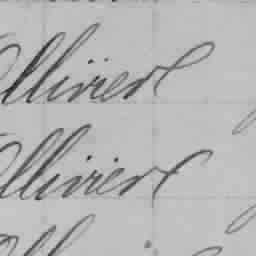 Ollivier
Ollivier